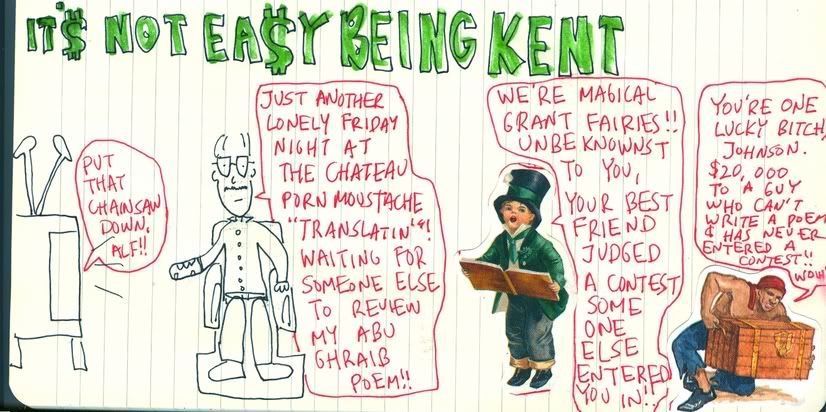 IT'$ NOT EA$Y BEING KENT
PUT
THAT
CHAINSAW
DOWN,
ALF!!
JUST ANOTHER
LONELY FRIDAY
NIGHT AT
THE CHATEAU
PORN MOUSTACHE
"TRANSLATIN'"!
WAITING FOR
SOMEONE ELSE
TO REVIEW
MY ABU
GHRAIB
POEM!!
WE'RE MAGICAL
GRANT FAIRIES!!
UNBEKNOWNST
TO YOU,
YOUR BEST
FRIEND
JUDGED
A CONTEST
SOME
ONE
ELSE
ENTERED
YOU IN!!
YOU'RE ONE
LUCKY BITCH,
JOHNSON.
$20,000
TO A GUY
WHO CAN'T
WRITE A POEM
& HAS NEVER
ENTERED A
CONTEST!!
WOW!